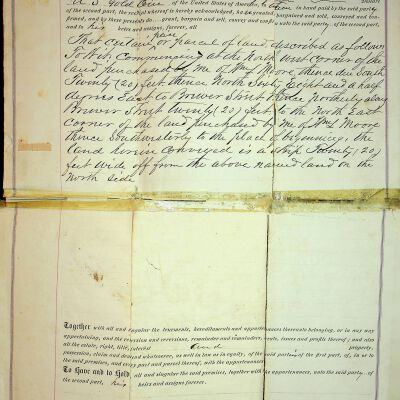 U S Gold Coin of the United States of America, to in hand paid by the said party
of the second part, the receipt whereof is hereby acknowledged, bargained and sold, conveyed and con-
firmed, and by these presents do grant, bargain and sell, convey and confirm unto the said party of the second part,
and to his heirs and assigns forever, all
piece
That certain or parcel of land described as follows
To Wit, Commencing at the North West corner of the
land purchased by Me of Wm Moore thence due South
Twenty (20) feet thence North Sixty Eight and a half
degrees East to Brewer Street thence Northerly along
Brewer Street twenty (20) feet to the North East
corner of the land purchased by Me of Wm Moore
thence Southwesterly to the place of beginning; the
land herein conveyed is a strip Twenty (20)
feet wide off from the above named land on the
North side
Together with all and singular the tenements, hereditaments and appurtenances thereunto belonging, or in any way
appertaining, and the reversion and reversions, remainder and remainders, rents, issues and profits thereof; and also
all the estate, right, title, interest and property,
possession, claim and demand whatsoever, as well in law as in equity, of the said parties of the first part, of, in or to
the said premises, and every part and parcel thereof, with the appurtenances
To Have and to Hold all and singular the said premises, together with the appurtenances, unto the said party of
the second part, his heirs and assigns forever.